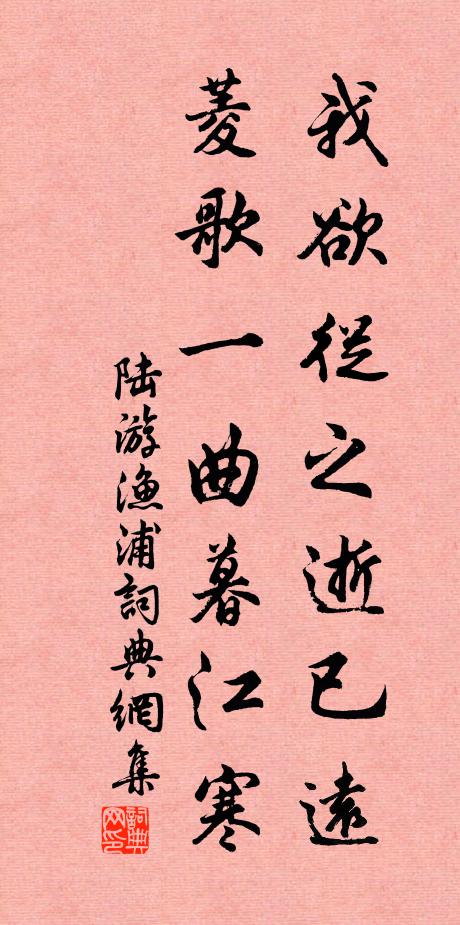 我欲從之逝已遠
菱歌一曲暮江寒
陆游漁浦詞典網集
詞典网印